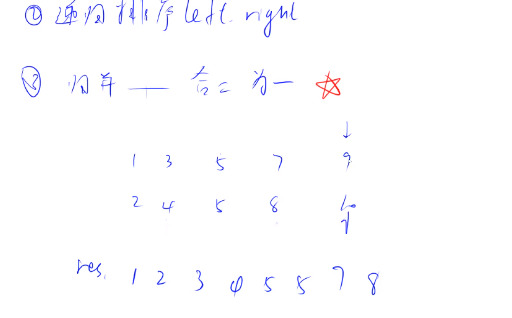 ② 递归排序 left. right
③ 归并 —— 合二为一 ☆
↓
1 3 5 7 9
2 4 5 8 10
↑
res. 1 2 3 4 5 5 7 8